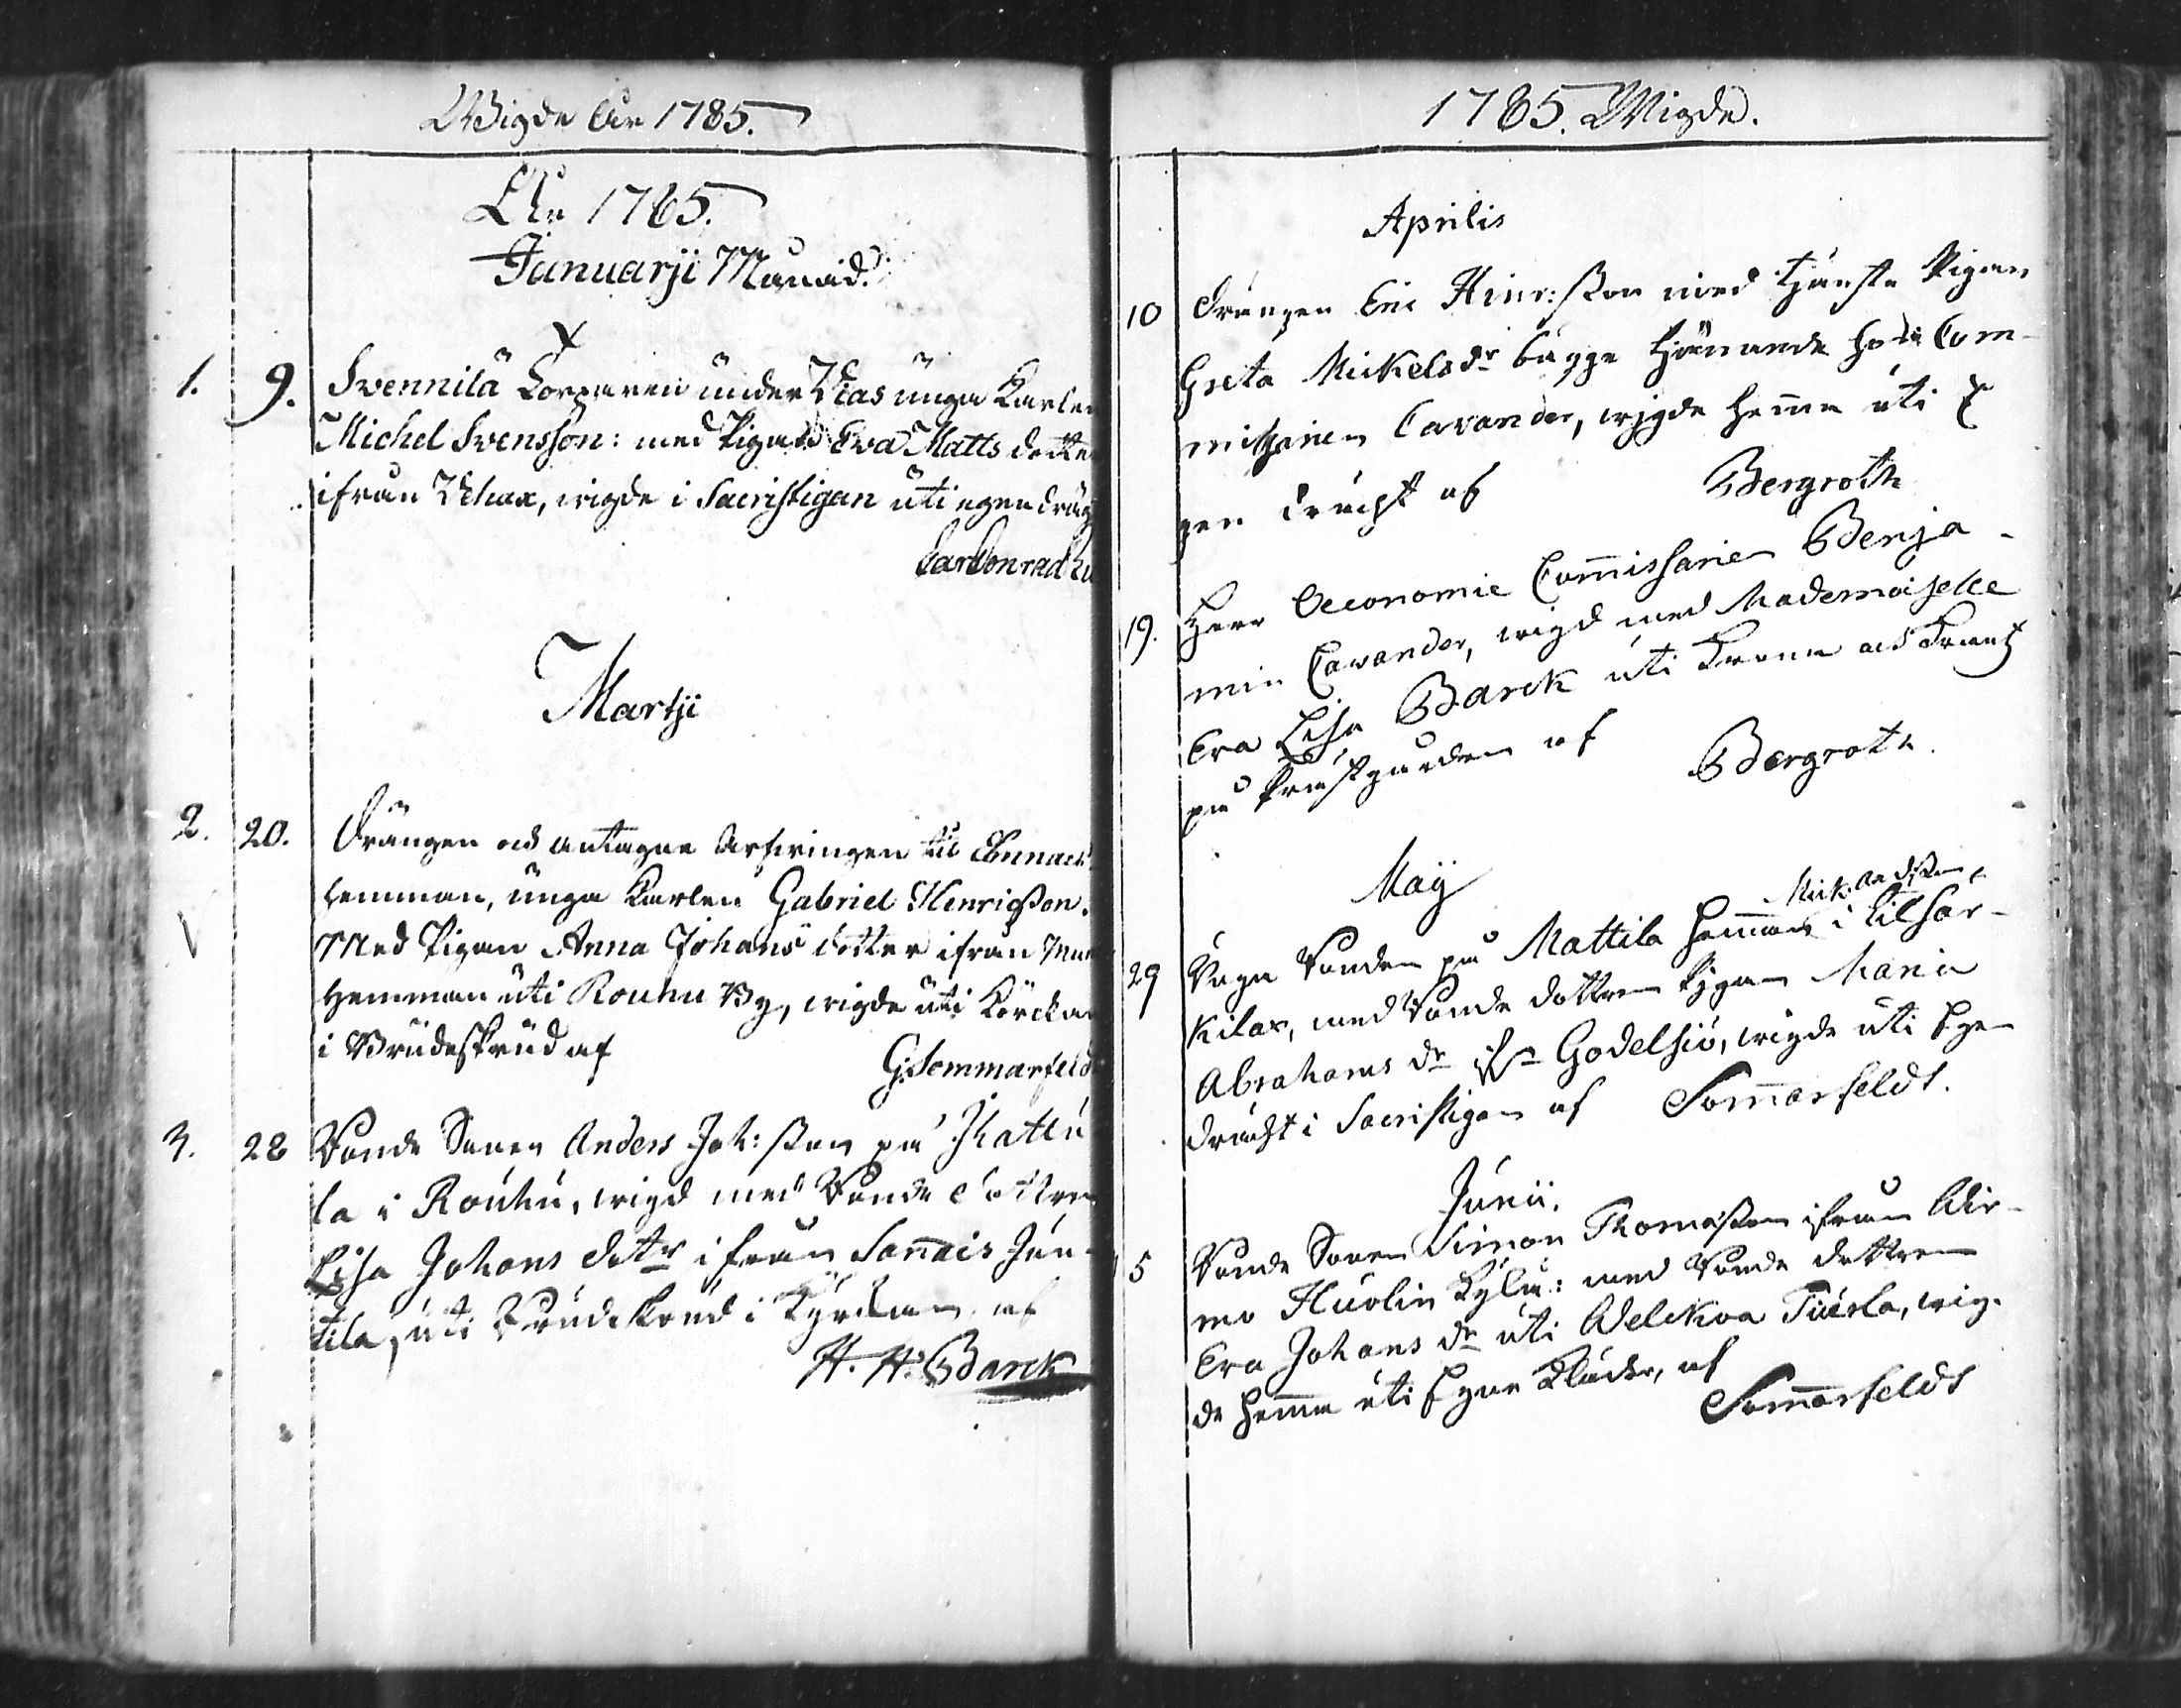 Wigde År 1785.
År 1785.
Januarji Månad.
1. 9. Svennilä Torparen under Wias unga Karlen
Michel Svensson: med Pigan Eva Matts dotter
ifrån Wehax, wigde i Sacristigan uti egen dräg
Carl Conrad
Martji
2. 20. Drängen och antagne Arfwingen til
hemman, unga Karlen Gabriel Henrigsson.
Med Pigan Anna Johans dotter ifrån
Hemman uti Rouhu By, wigde uti Körckan
i Brudeskrud af
G: Sommarfeld
3. 28 Bonde Sonen Anders Joh: sson på
la i Rouhu, wigd med Bonde dottren
Lisa Johans dotr ifrån Sannais Jun-
tila, uti Brudeskrud i Kyrckan af
H. H. Barck
1785. Wigde.
Aprilis
10 Drängen Eric Hinr: sson med tjänste Pigan
Greta Mickelsdr bägge tjänande hos Com-
missarien Cavander, wigde hemma uti E
gen drächt af Bergroth
19. Herr Oeconomie Commissarien Benja-
min Cavander, wigd med Mademoiselle
Eva Lisa Barck uti Krona och Krantz
på Prästgården af Bergroth.
Maij
Mick: Andsson,
29 Unga Bonden på Mattila hemman i Lilsar-
kilax, med Bonde dottren Pigan Maria
Abrahams dr ifrn Godelsjö, wigde uti Egen
drächt i Sacristigan af Sommarfeldt.
Junii.
5 Bonde Sonen Simon Thomasson ifrån Wir-
mo Huolin Kylä: med Bonde dottren
Eva Johans dr uti Welckoa Tuerla, wig-
de hemma uti Egne Kläder, af
Sommarfeldt